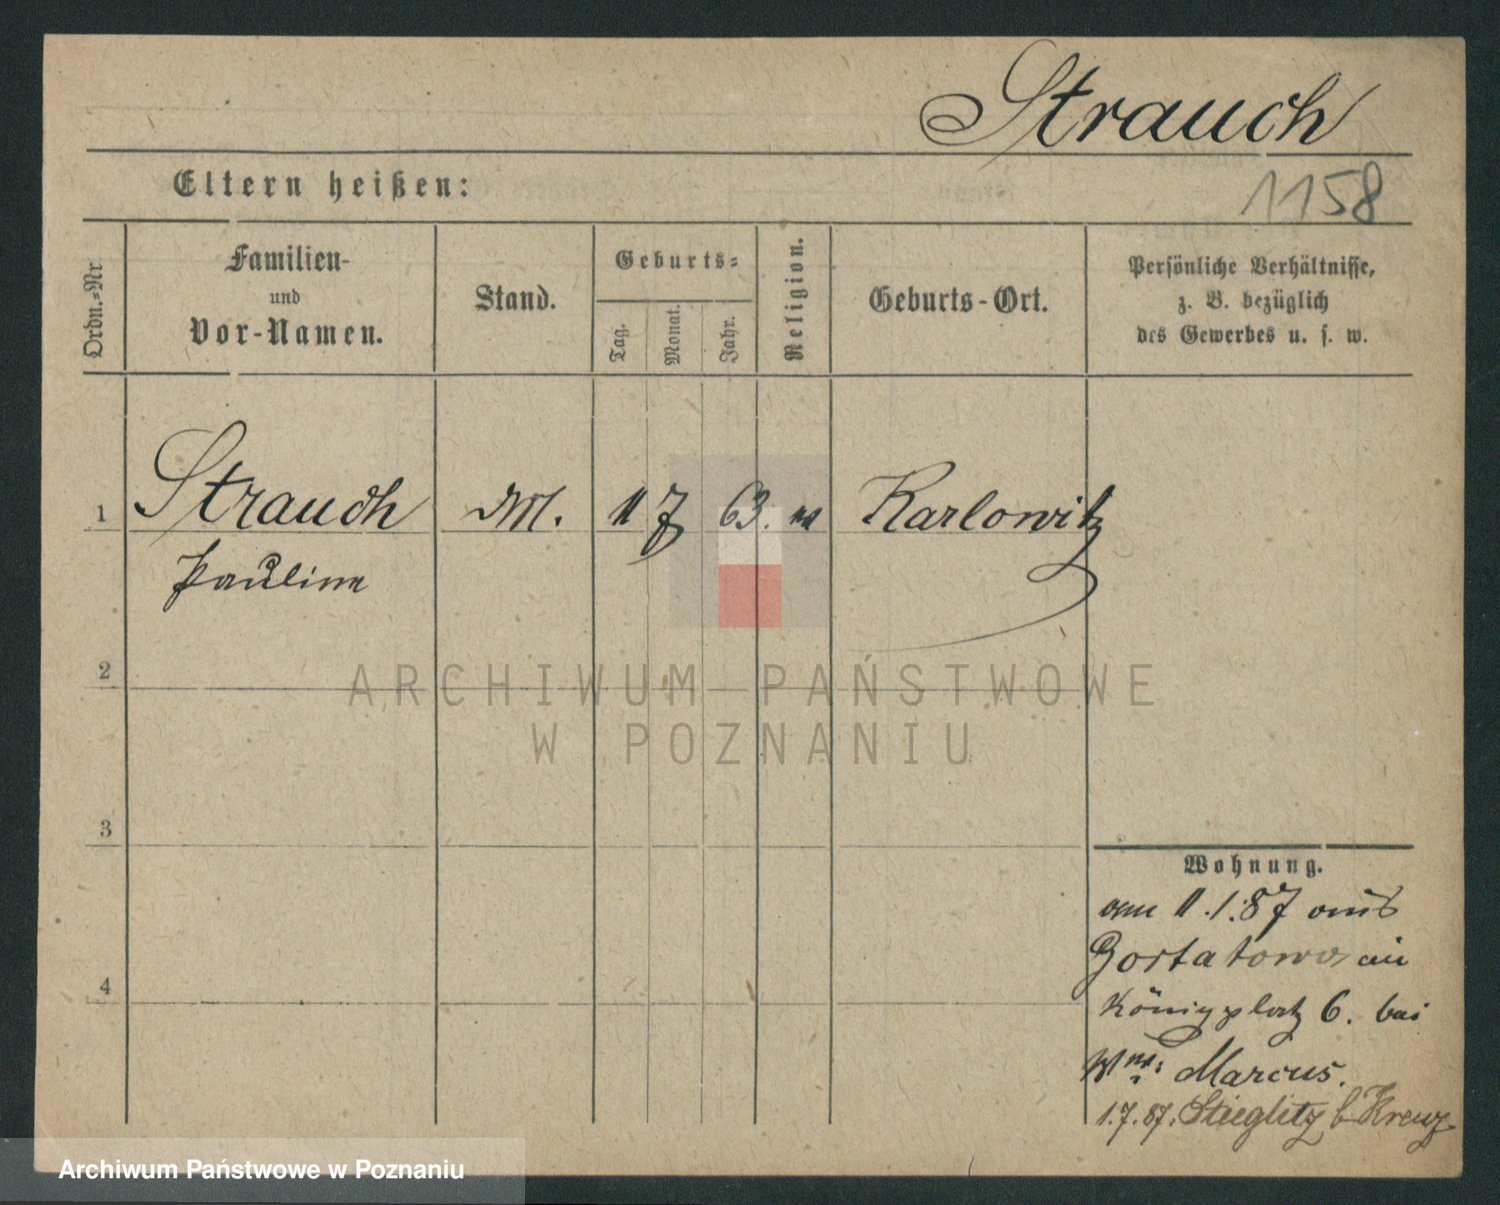 Strauch
1158
Eltern heißen:
Ordn.=Nr.
Familien-
und
Vor-Namen.
Stand.
Geburts=
Tag.
Monat.
Jahr.
Religion.
Geburts-Ort.
Persönliche Verhältnisse,
z. B. bezüglich
des Gewerbes u. s. w.
1 Strauch M. 11 7 63. Karlowitz
Pauline
2
3
4
Wohnung.
am 11.1.87 aus
Gortatowo in
Königsplatz 6. bei
Marcus.
1.7.87. Stieglitz b Kreuz
ARCHIWUM PAŃSTWOWE
W POZNANIU
Archiwum Państwowe w Poznaniu